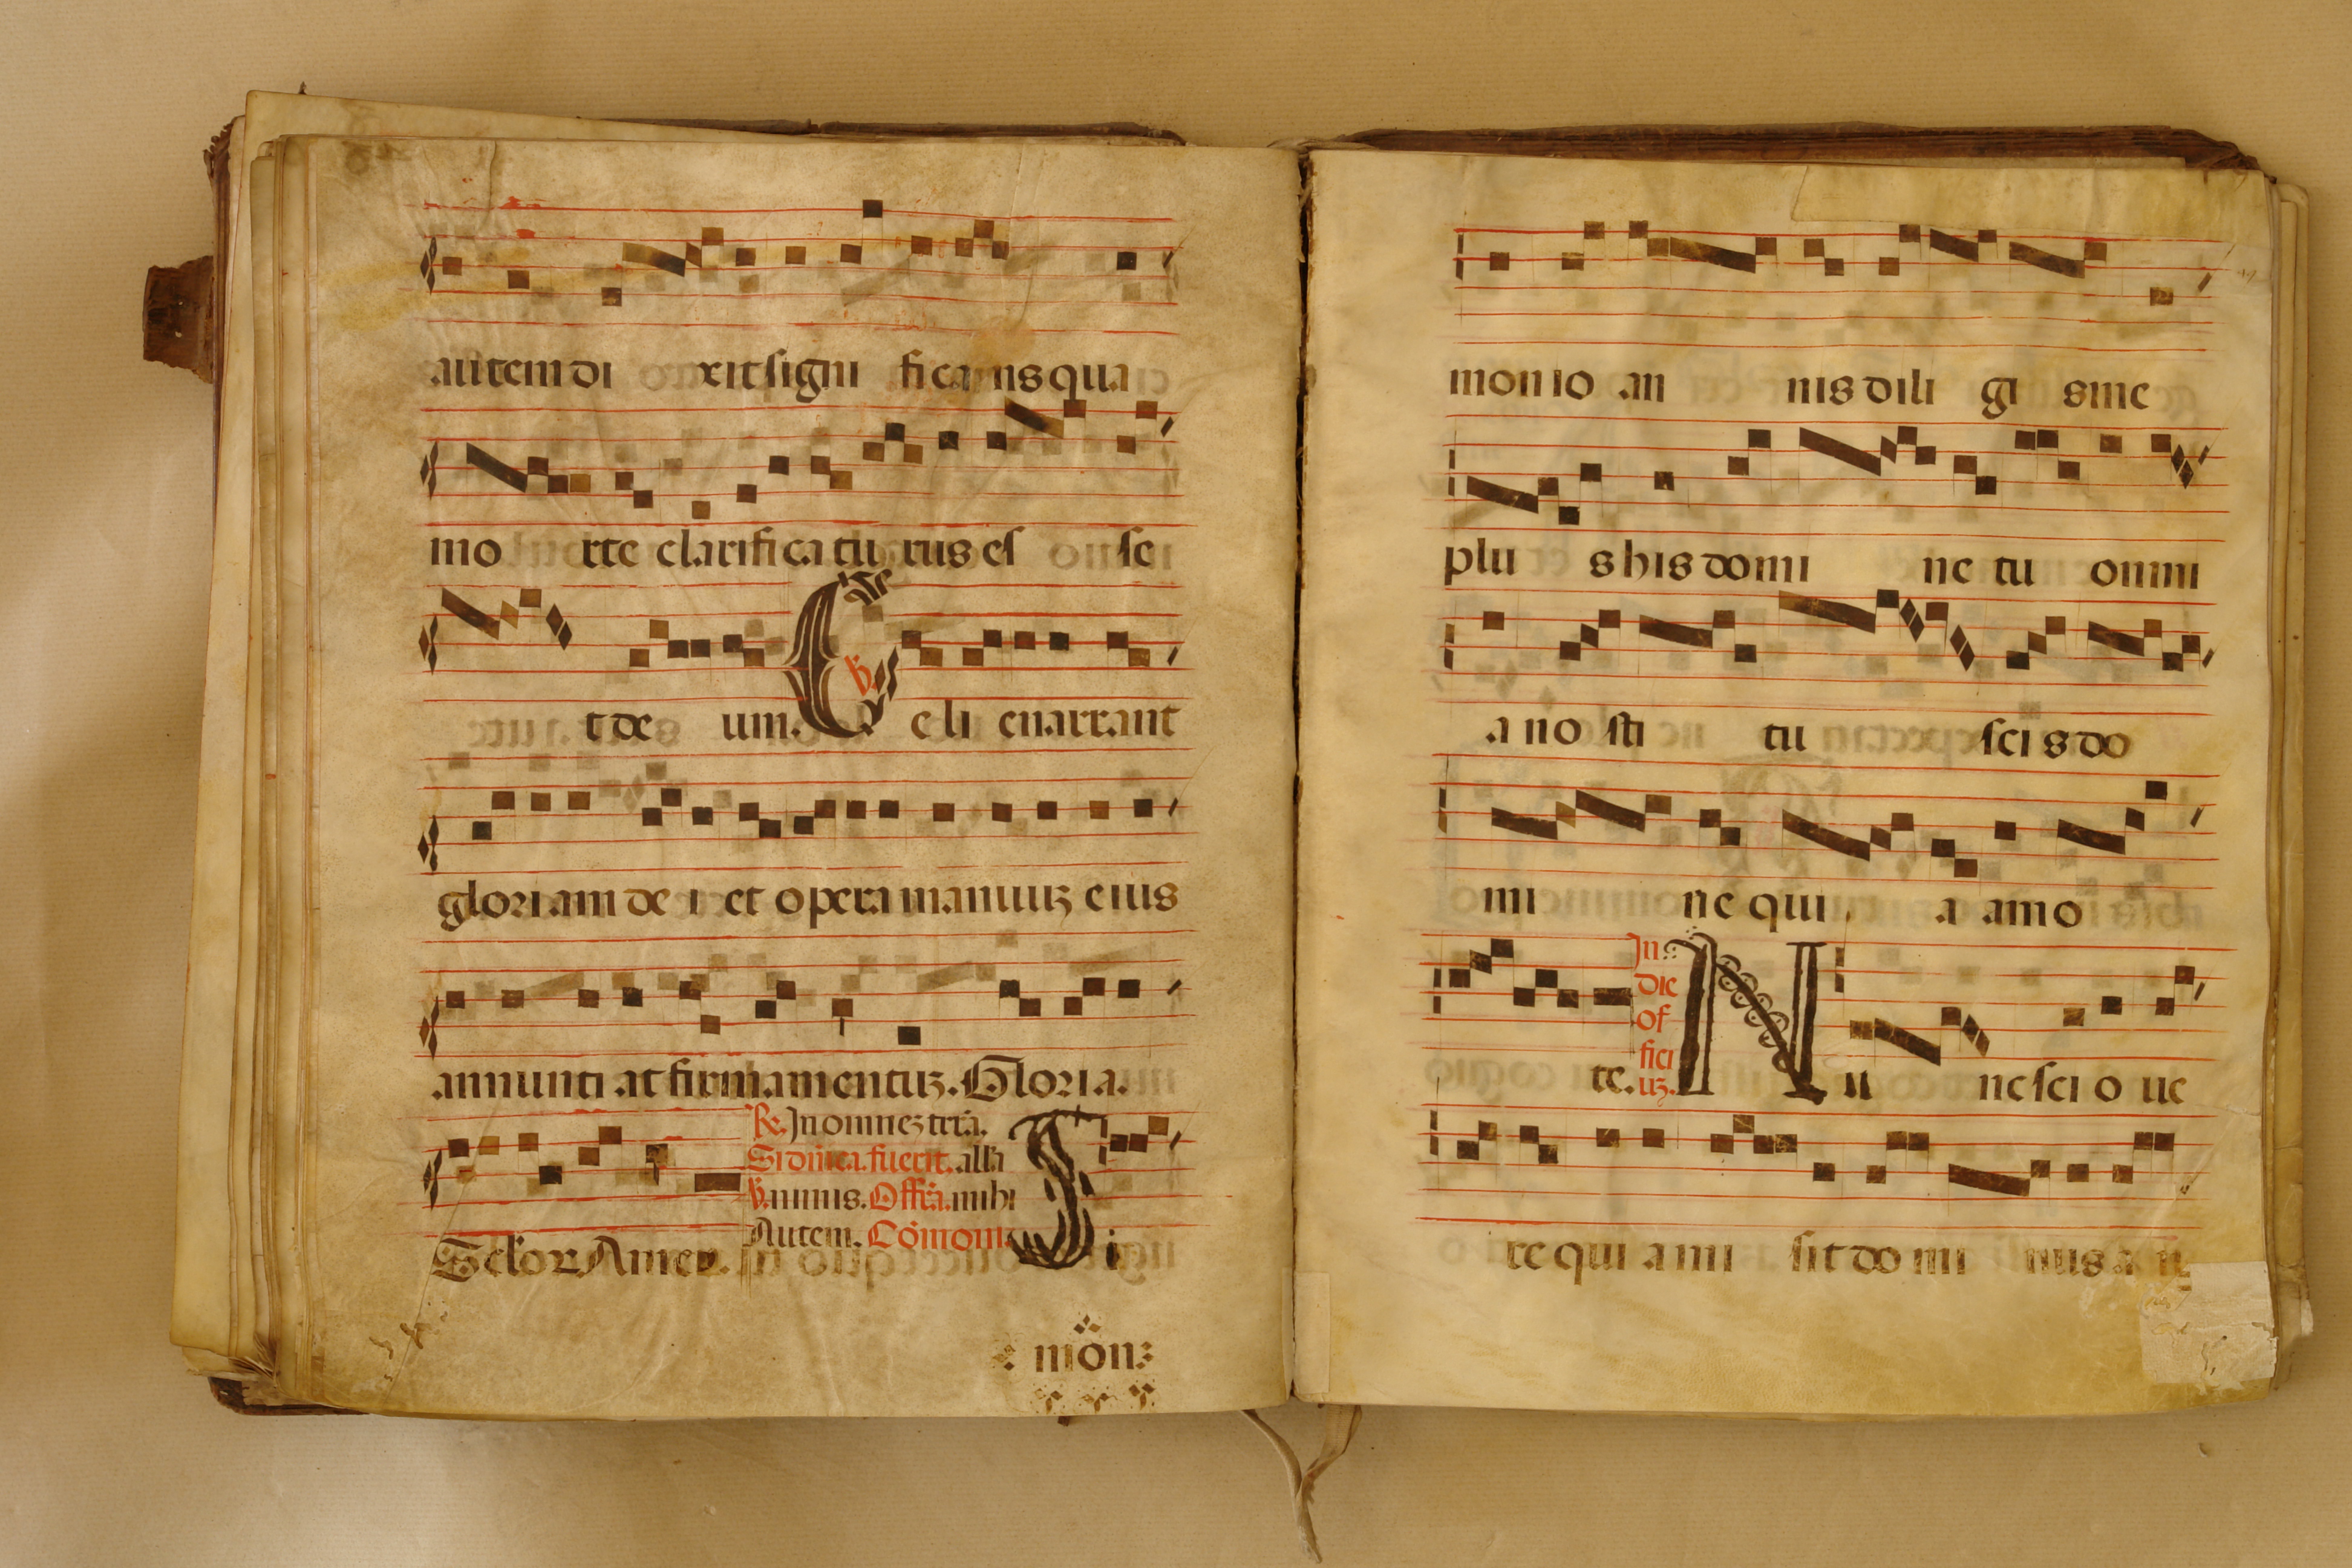 autem di xit signi fica ns qua
mo rte clarifica tu rus es se
t de um. ℣. Celi enarrant
gloriam de i et opera manuuꝫ eius
annunti at firmamentuꝫ. Gloria.
Seculor Amen. ℟. In omneꝫ trā.
Si dn̄ica fuerit. alla
℣. nimis. Offrā. mihi
Autem. Cōmonio Si
mōn:
monio an nis dili gi s me
plu s his domi ne tu omni
a no sti tu sci s do
mi ne qui a amo
te. In die officiuꝫ. Nu nc sci o ue
re qui a mi sit do mi nus a n